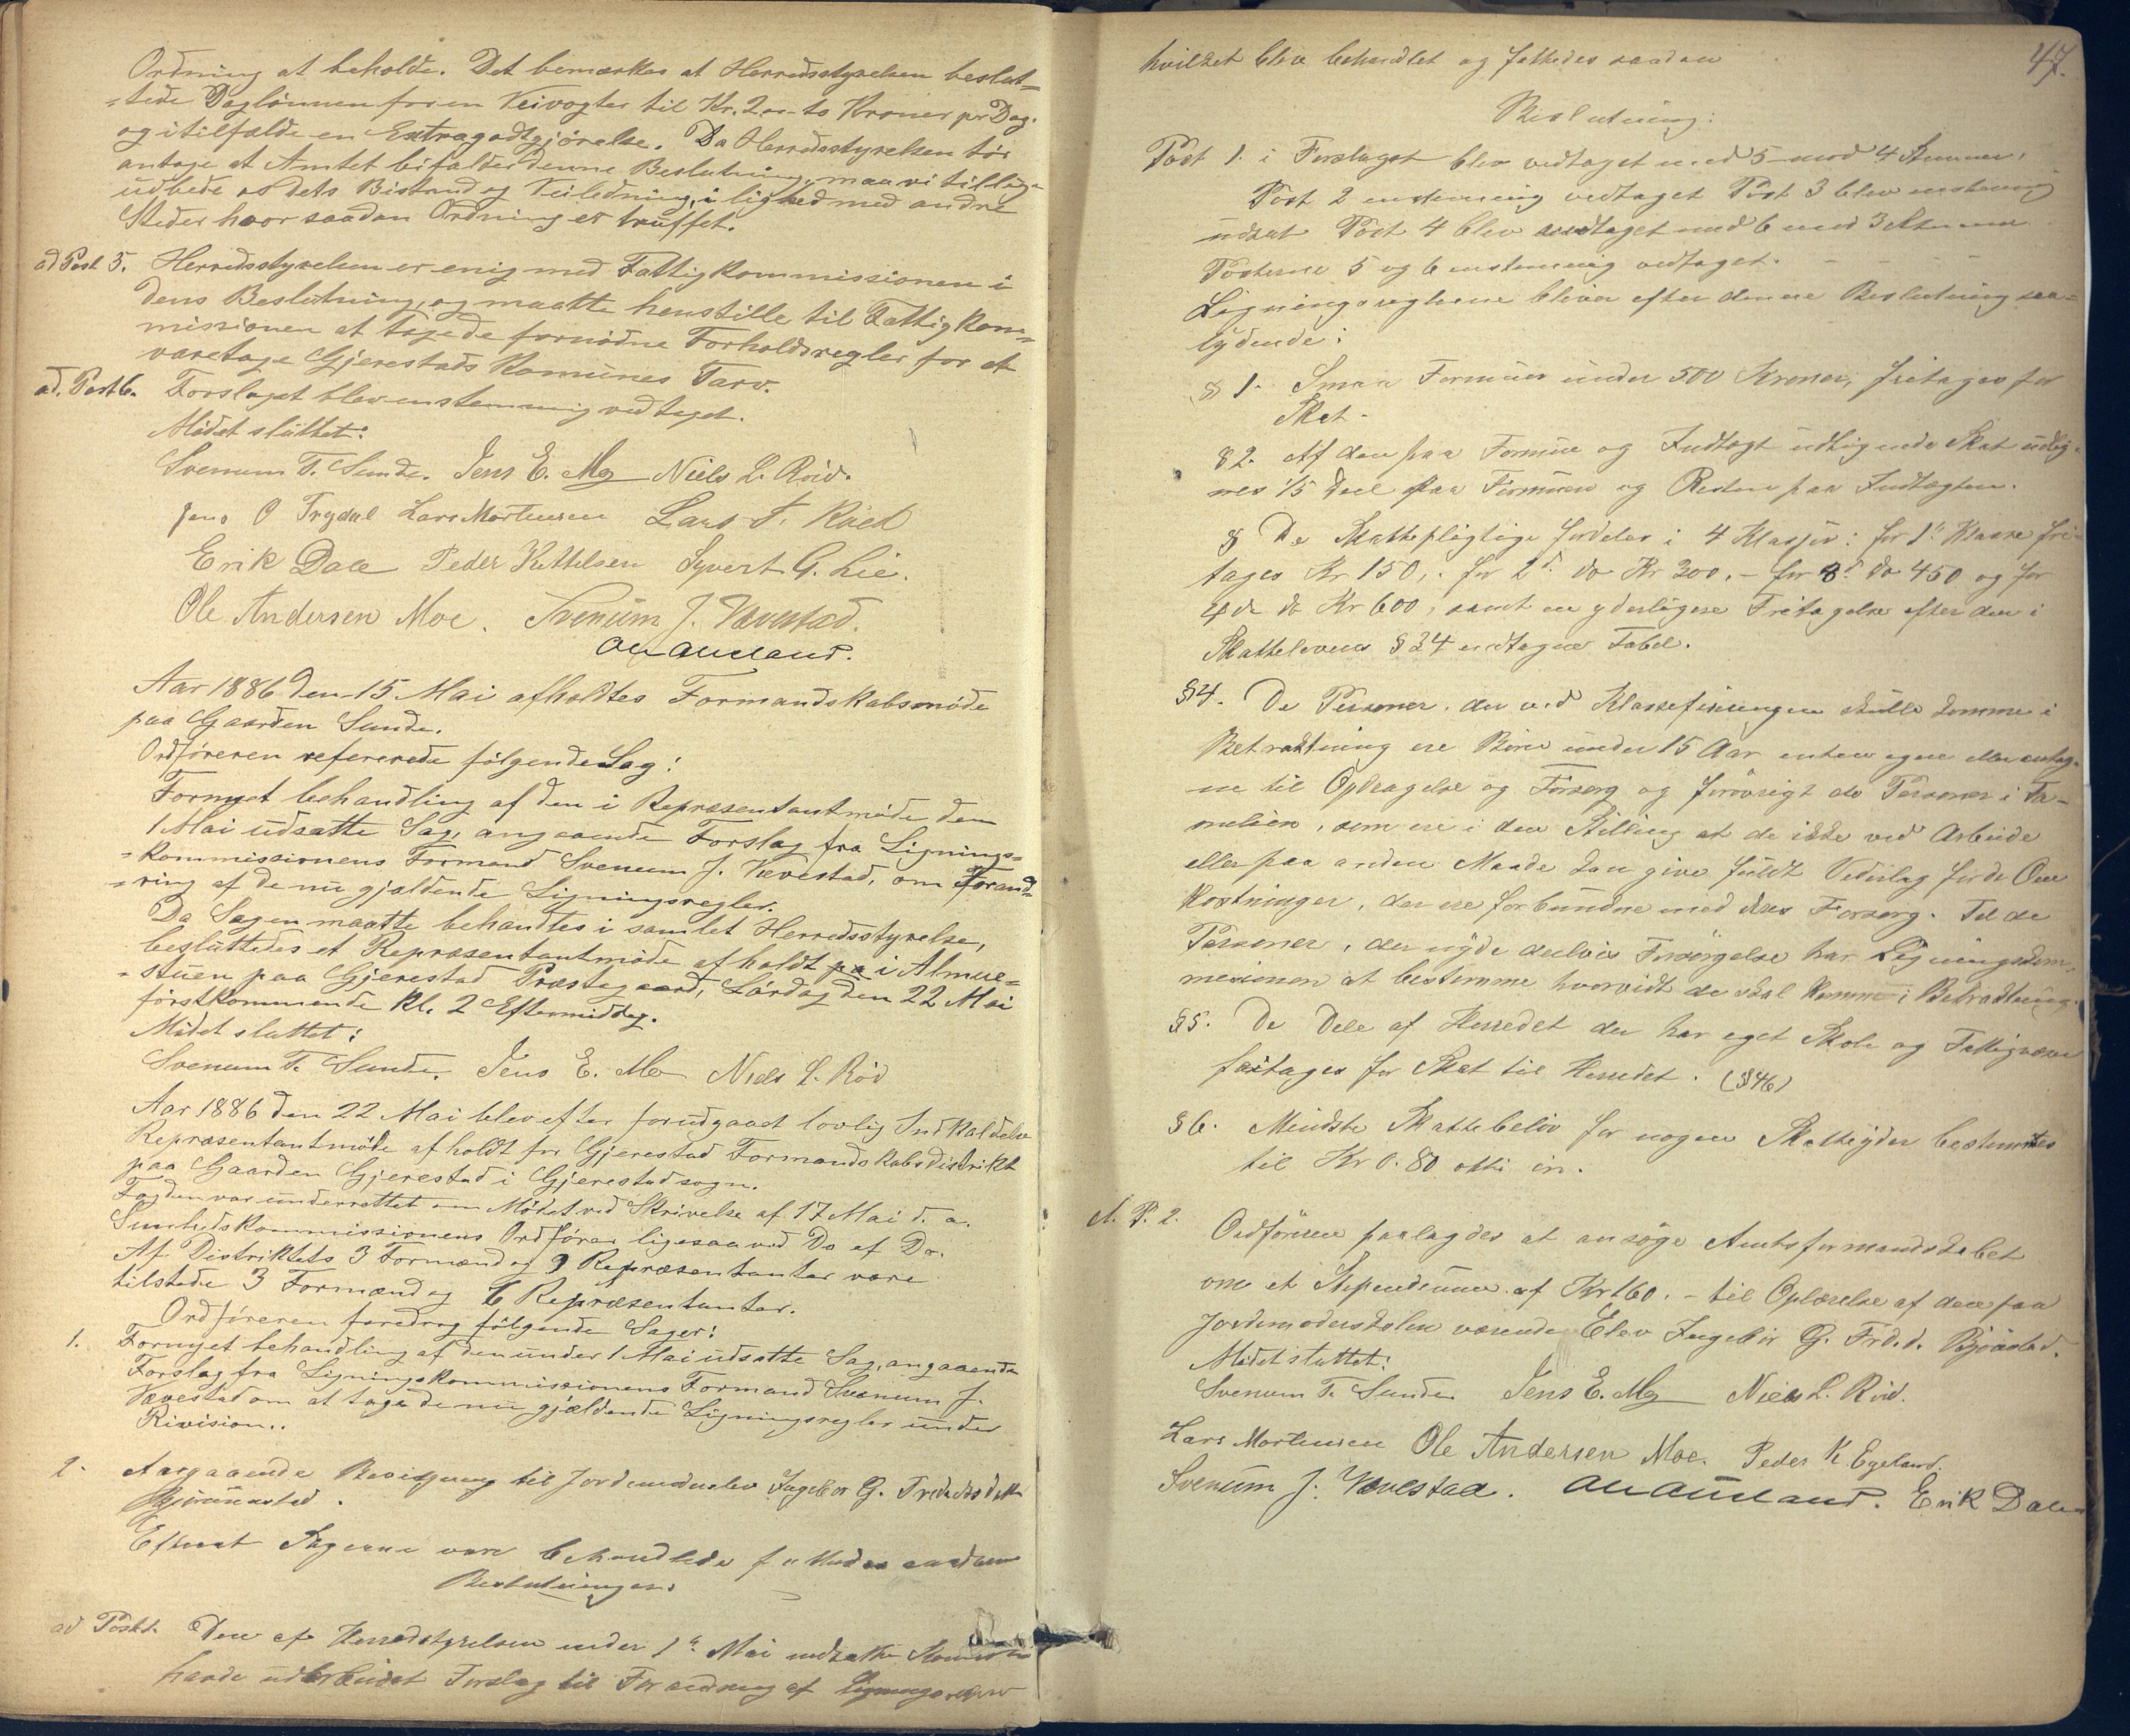 Ordning at beholde. Det bemærkes at Herredsstyrelsen beslut=
=tede Daglönnen for en Veivogter til Kr. 2.00 to Kroner pr Dag.
og i tilfælde en Extragodtgjörelse. Da Herredsstyrelsen tör
antage at Amtet bifalder denne Beslutning, maa vi tillige
udbede os dets Bistand og Veiledning, i lighed med andre
Steder hvor saadan Ordning er truffet.
ad Post 5. Herredsstyrelsen er enig med Fattigkommissionen i
dens Beslutning, og maatte henstille til Fattigkom=
missionen at tage de fornödne Forholdsregler for at
varetage Gjerestads Komunes Tarv.
ad. Post 6. Forslaget blev enstemmig vedtaget.
Mödet sluttet:
Svenum T. Sunde. Jens E. Mo Niels L. Röd.
Jens O Trydal Lars Mortensen Lars T. Röed
Erik Dale Peder Kittelsen Syvert G. Lie.
Ole Andersen Moe. Svenum J. Vævestad.
Aar 1886 den 15 Mai afholdtes Formandskabsmöde
paa Gaarden Sunde.
Ordföreren refererede fölgende Sag:
Fornyet behandling af den i Repræsentantmöde den
1 Mai udsatte Sag, angaaende Forslag fra Lignings=
=kommissionens Formand Svenum J. Vævestad, om Forand=
=ring af de nu gjældende Ligningsregler.
Da Sagen maatte behandles i samlet Herredsstyrelse,
besluttedes et Repræsentantmöde afholdt pa i Almue=
=stuen paa Gjerestad Præstegaard, Lördag den 22 Mai
förstkommende Kl. 2 Eftermiddag.
Mödet sluttet:
Svenum T. Sunde. Jens E. Mo Niels L. Röd
Aar 1886 den 22 Mai blev efter forudgaaet lovlig Indkaldelse
Repræsentantmöde afholdt for Gjerestad Formandskabsdistrikt
paa Gaarden Gjerestad i Gjerestad sogn.
Fogden var underrettet om Mödet ved Skrivelse af 17 Mai d. a.
Sundhedskommissionens Ordförer ligesaa ved Do af Do.
Af Distriktets 3 Formænd og 9 Repræsentanter vare
tilstede 3 Formænd og 6 Repræsentanter.
Ordföreren foredrog fölgende Sager:
1. Fornyet behandling af den under 1 Mai udsatte Sag, angaaende
Forslag fra Ligningskommissionens Formand Svenum J.
Vævestad om at tage de nu gjældende Ligningsregler under
Rivision..
2. Angaaende Bevilgning til Jordemoderelev Ingebor G.
Efterat Sagerne vare behandlede fattedes saadan
Beslutninger:
ad Post 1. Den af Herredstyrelsen under 1ste Mai nedsatte
havde udarbeidet Forslag til Forandring af
47.
hvilket blev behandlet og fattedes saadan
Beslutning:
Post 1. i Forslaget blev vedtaget med 5 mod 4 Stemmer.
Post 2 enstemmig vedtaget Post 3 blev enstemmig
udsat Post 4 blev vedtaget med 6 mod 3 Stemmer
Posterne 5 og 6 enstemmig vedtaget. - - - -
Ligningsreglerne bliver efter denne Beslutning saa=
lydende:
§ 1. Smaa Formuer under 500 Kroner, fritages for
Skat -
§ 2. Af den paa Formue og Indtægt udlignede Skat udlig-
nes 1/5 Deel paa Formuen og Resten paa Indtægten.
§ De Skattepligtige fordeles i 4 Klasser: for 1ste Klasse fri-
tages Kr 150,. for 2d. do Kr 300. - for 3d do 450 og for
4de do Kr 600, samt en yderligere Fritagelse efter den i
Skattelovens § 24 indtagne Tabel.
§ 4. De Personer, der ved Klassefiseringen skulle komme i
Betraktning ere Börn under 15 Aar enten egne eller antag-
ne til Opdragelse og Forsorg og forövrigt de Personer i Fa-
melien, som ere i den Stilling at de ikke ved Arbeide
eller paa anden Maade kan give fuldt Vederlag for de Om
kostninger, der ere forbundne med deres Forsorg. Til de
Personer, der nyde delvis Forsörgelse har Ligningskom-
mesionen at bestemme hvorvidt de skal komme i Betraktning.
§ 5. De Dele af Herredet der har eget Skole og Fattigvæsen
fritages for Skat til Herredet. (§ 46)
§ 6. Mindste Skattebelöb for nogen Skatteyder bestemtes
til Kr 0.80 otti öre.
A. P. 2. Ordföreren paalagdes at ansöge Amtsformandskabet
om et Stipendium af Kr 160. - til Oplærelse af den paa
Jordemoderskolen værende Elev Ingebor G. Frd.d.
Mödet sluttet:
Svenum T. Sunde Jens E. Mo Niels L. Röd.
Lars Mortensen Ole Andersen Moe. Peder K. Egeland.
Svenum J. Vævestad. Erik Dale